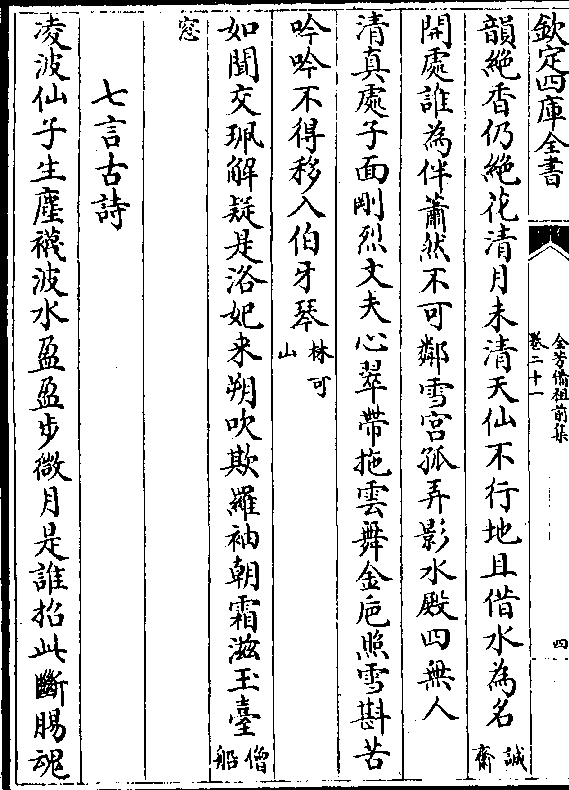 欽定四庫全書
全芳備祖前集
卷二十一
四
韻絶香仍絶花清月未清天仙不行地且借水為名誠齋
開處誰為伴蕭然不可鄰雪宮孤弄影水殿四無人
清真處子面剛烈丈夫心翠帶拖雲舞金巵照雪斟苦
吟吟不得移入伯牙琴林可山
如聞交珮解疑是洛妃来朔吹欺羅袖朝霜滋玉臺僧船
窓
七言古詩
凌波仙子生塵襪波水盈盈步微月是誰招此斷腸魂